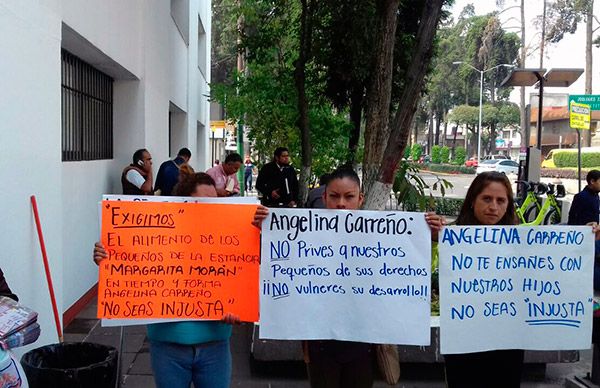 "EXIGIMOS"
EL ALIMENTO DE LOS
PEQUEÑOS DE LA ESTANCIA
"MARGARITA MORÁN"
EN TIEMPO Y FORMA
ANGELINA CARREÑO
"NO SEAS INJUSTA"
Angelina Carreño:
NO Prives a nuestros
Pequeños de sus derechos
¡¡NO vulneres su desarrollo!!
ANGELINA CARREÑO
NO TE ENSAÑES CON
NUESTROS HIJOS
NO SEAS "INJUSTA"